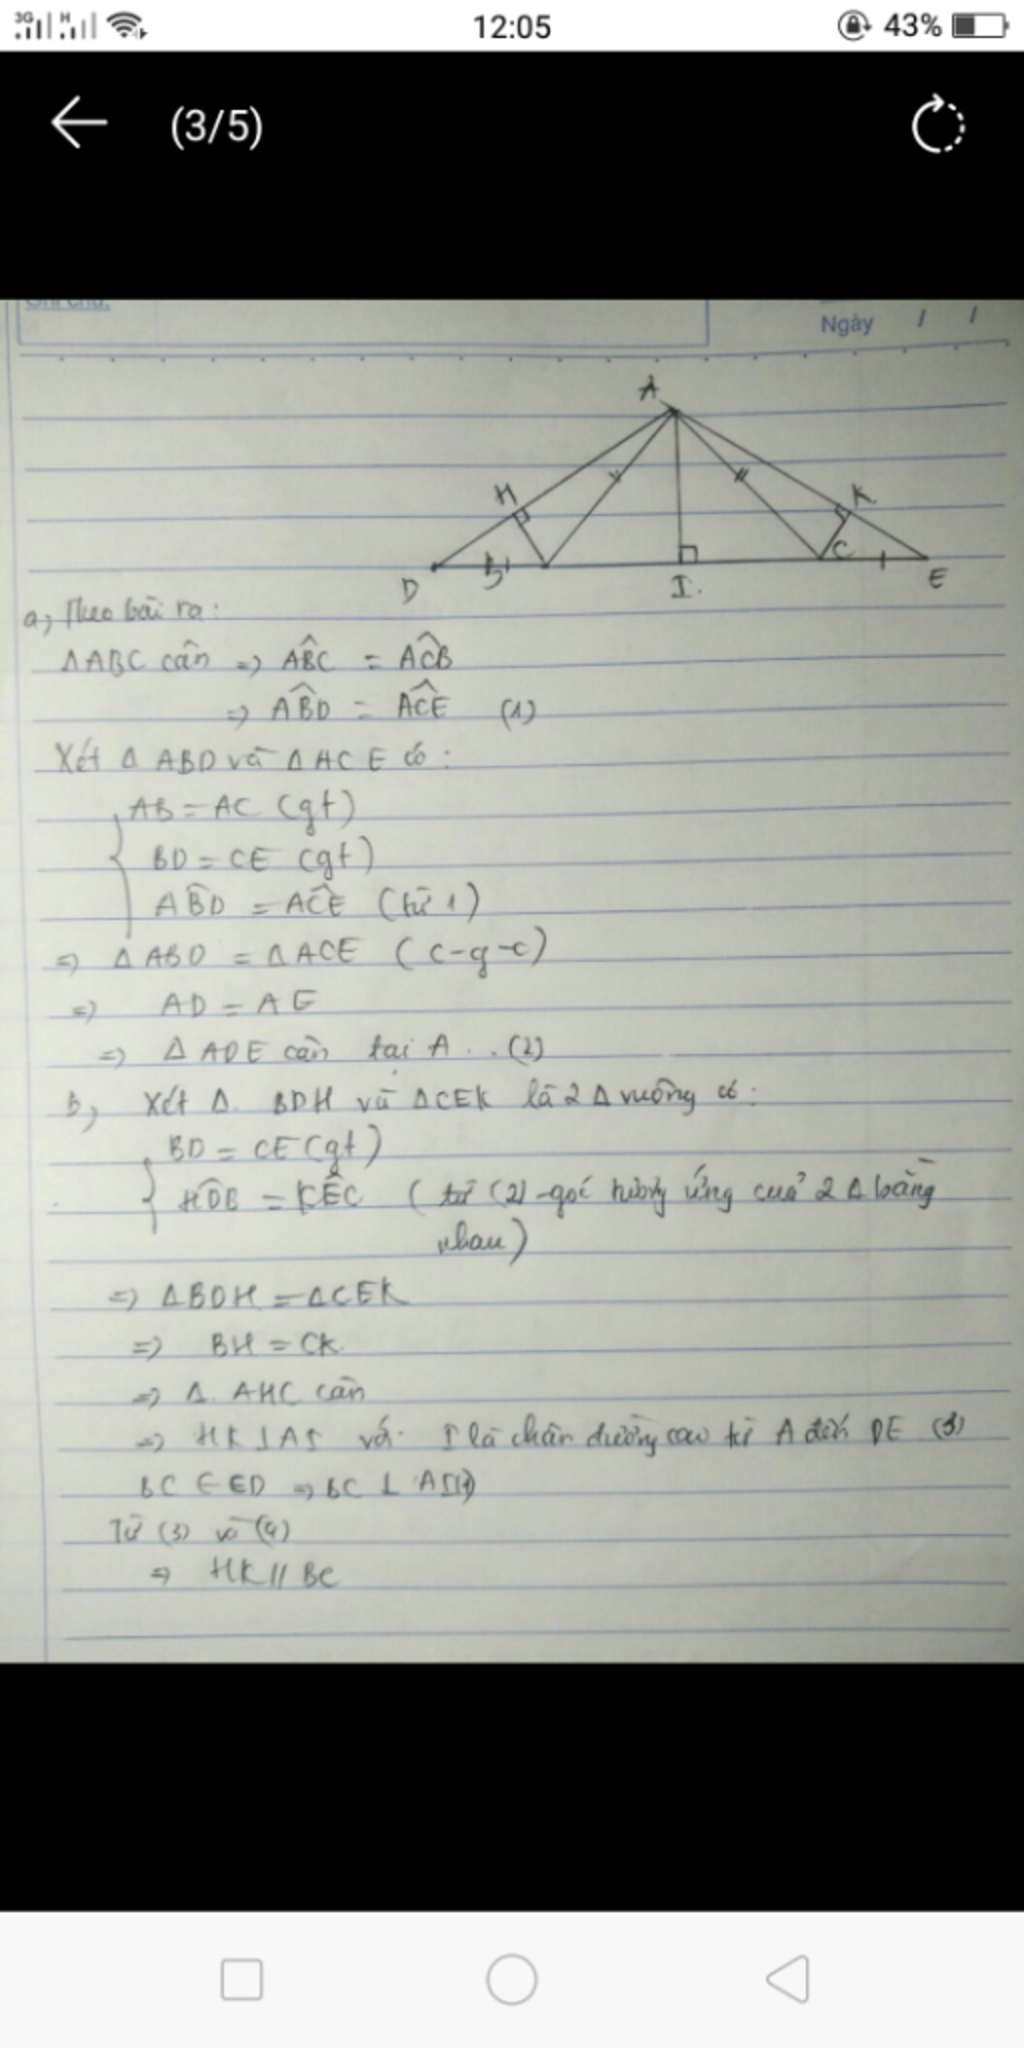 3G H 12:05 43%
(3/5)
Ghi chú:
Ngày / /
A
H
K
B
C
D
I.
E
a, Theo bài ra:
ΔABC cân => ABC^ = ACB^
=> ABD^ = ACE^ (1)
Xét Δ ABD và Δ ACE có:
AB = AC (gt)
BD = CE (gt)
ABD^ = ACE^ (từ 1)
=> Δ ABD = Δ ACE (c-g-c)
=> AD = AE
=> Δ ADE cân tại A .. (2)
b, Xét Δ. BDH và ΔCEK là 2 Δ vuông có:
BD = CE (gt)
HDB^ = KEC^ (từ (2) - góc tương ứng của 2 Δ bằng
nhau)
=> ΔBDH = ΔCEK
=> BH = CK.
=> Δ. AHC cân
=> HK ⊥ AI với I là chân đường cao từ A đến DE (3)
BC ∈ ED => BC ⊥ AI
Từ (3) và (4)
=> HK // BC